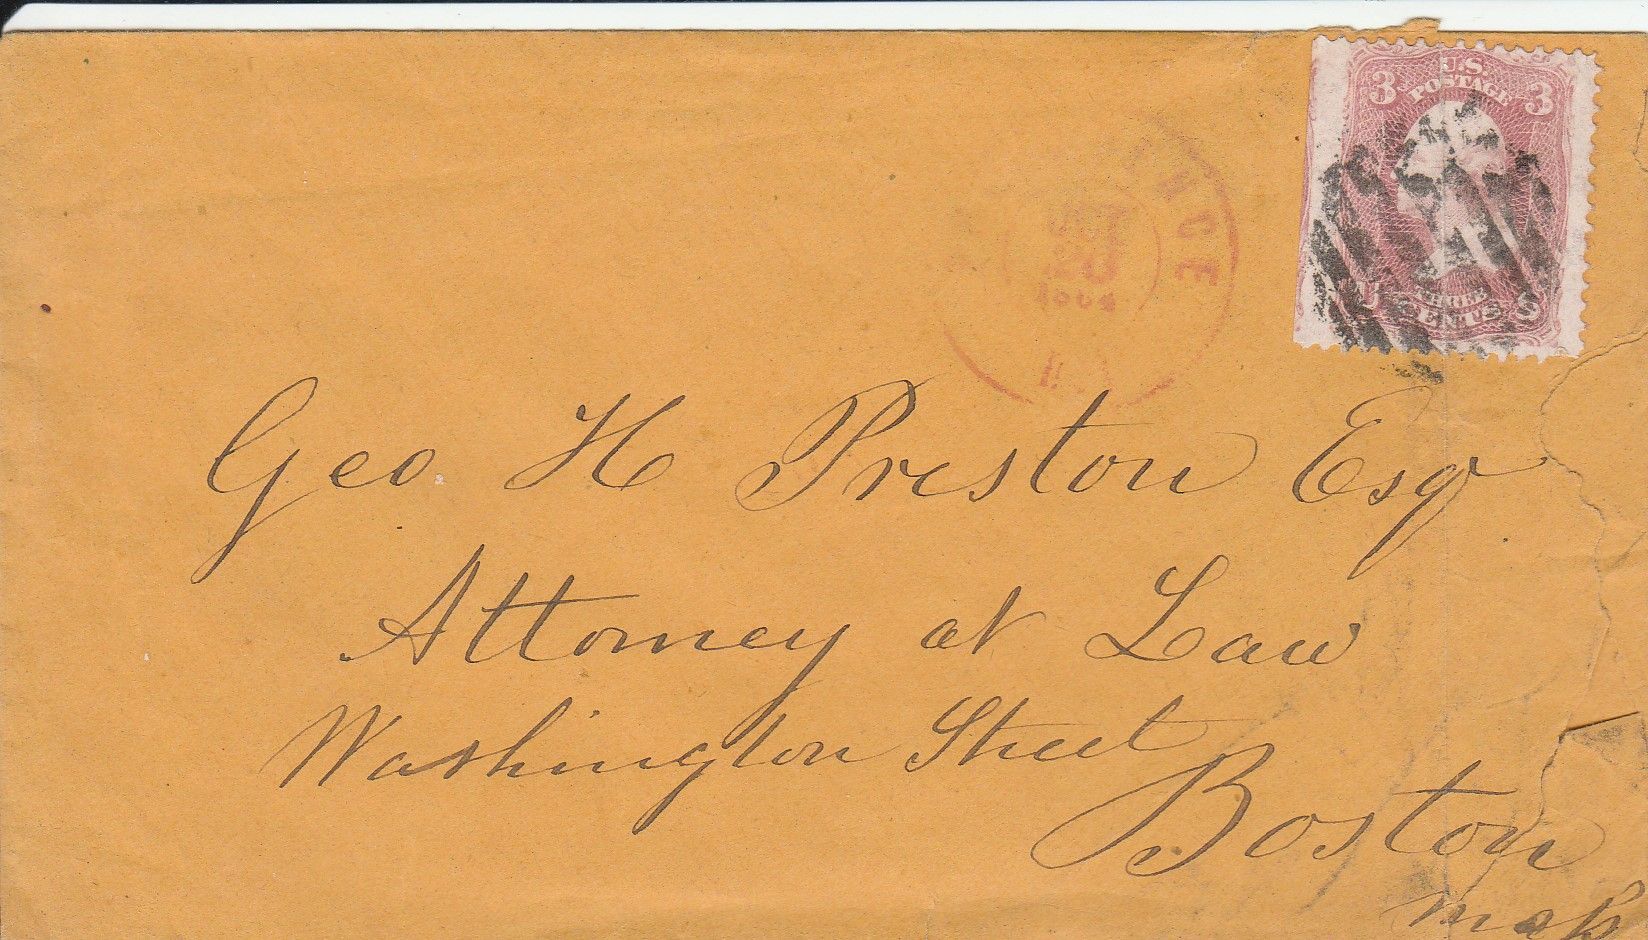 3 U.S. 3
POSTAGE
THREE
CENTS
Geo. H Preston Esq
Attorney at Law
Washington Street
Boston
Mass